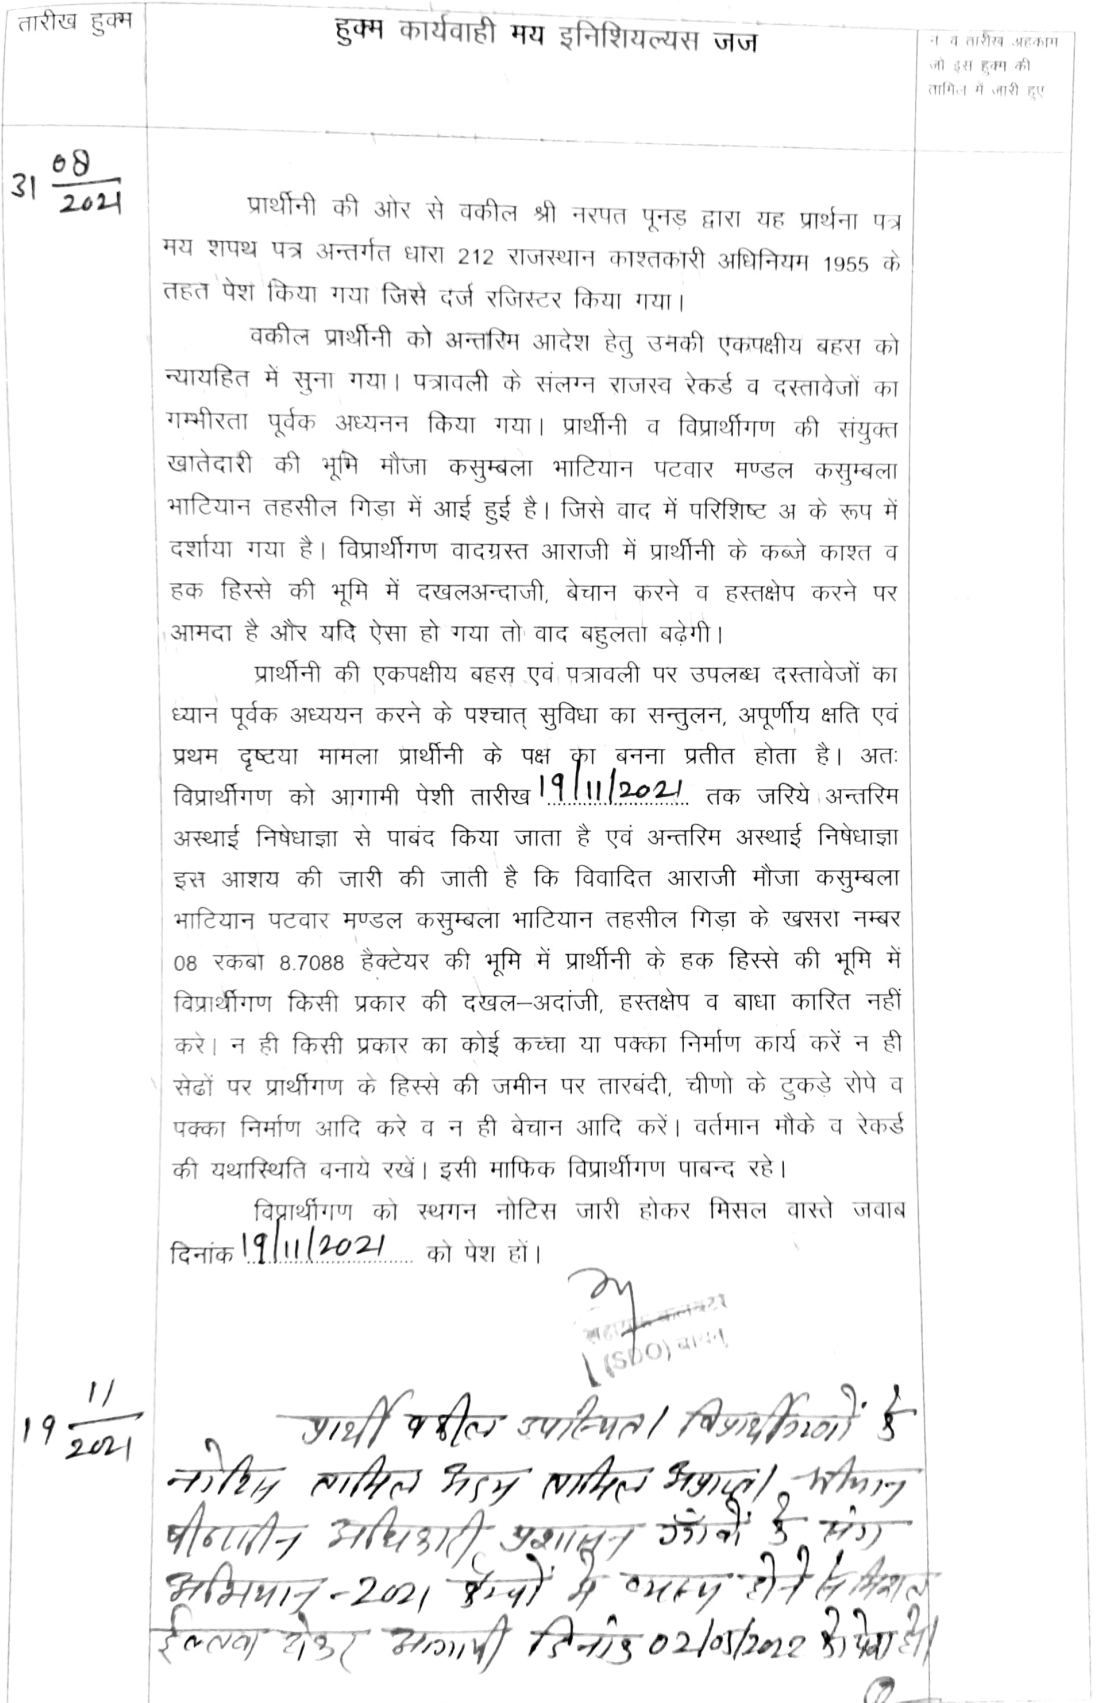 तारीख हुक्म
हुक्म कार्यवाही मय इनिशियल्यस जज
न व तारीख अहकाम
जो इस हुक्म की
तामिल में जारी हुए
31 08/2021
प्रार्थीनी की ओर से वकील श्री नरपत पूनड़ द्वारा यह प्रार्थना पत्र
मय शपथ पत्र अन्तर्गत धारा 212 राजस्थान काश्तकारी अधिनियम 1955 के
तहत पेश किया गया जिसे दर्ज रजिस्टर किया गया।
वकील प्रार्थीनी को अन्तरिम आदेश हेतु उनकी एकपक्षीय बहस को
न्यायहित में सुना गया। पत्रावली के संलग्न राजस्व रेकर्ड व दस्तावेजों का
गम्भीरता पूर्वक अध्यनन किया गया। प्रार्थीनी व विप्रार्थीगण की संयुक्त
खातेदारी की भूमि मौजा कसुम्बला भाटियान पटवार मण्डल कसुम्बला
भाटियान तहसील गिड़ा में आई हुई है। जिसे वाद में परिशिष्ट अ के रूप में
दर्शाया गया है। विप्रार्थीगण वादग्रस्त आराजी में प्रार्थीनी के कब्जे काश्त व
हक हिस्से की भूमि में दखलअन्दाजी, बेचान करने व हस्तक्षेप करने पर
आमदा है और यदि ऐसा हो गया तो वाद बहुलता बढ़ेगी।
प्रार्थीनी की एकपक्षीय बहस एवं पत्रावली पर उपलब्ध दस्तावेजों का
ध्यान पूर्वक अध्ययन करने के पश्चात् सुविधा का सन्तुलन, अपूर्णीय क्षति एवं
प्रथम दृष्टया मामला प्रार्थीनी के पक्ष का बनना प्रतीत होता है। अतः
विप्रार्थीगण को आगामी पेशी तारीख 19/11/2021 तक जरिये अन्तरिम
अस्थाई निषेधाज्ञा से पाबंद किया जाता है एवं अन्तरिम अस्थाई निषेधाज्ञा
इस आशय की जारी की जाती है कि विवादित आराजी मौजा कसुम्बला
भाटियान पटवार मण्डल कसुम्बला भाटियान तहसील गिड़ा के खसरा नम्बर
08 रकबा 8.7088 हैक्टेयर की भूमि में प्रार्थीनी के हक हिस्से की भूमि में
विप्रार्थीगण किसी प्रकार की दखल–अदांजी, हस्तक्षेप व बाधा कारित नहीं
करे। न ही किसी प्रकार का कोई कच्चा या पक्का निर्माण कार्य करें न ही
सेढों पर प्रार्थीगण के हिस्से की जमीन पर तारबंदी, चीणो के टुकड़े रोपे व
पक्का निर्माण आदि करे व न ही बेचान आदि करें। वर्तमान मौके व रेकर्ड
की यथास्थिति बनाये रखें। इसी माफिक विप्रार्थीगण पाबन्द रहे।
विप्रार्थीगण को स्थगन नोटिस जारी होकर मिसल वास्ते जवाब
दिनांक 19/11/2021 को पेश हों।
सहायक कलक्टर
(SDO) बायतु
19 11/2021
प्रार्थी वकील उपस्थित। विप्रार्थीगणों के
नोटिस तामिल अदम तामिल अप्राप्त। श्रीमान
पीठासीन अधिकारी प्रशासन गांवों के संग
अभियान-2021 कैम्पों में व्यस्त होने से मिसल
होकर आगामी दिनांक 02/03/2022 को पेश हो।